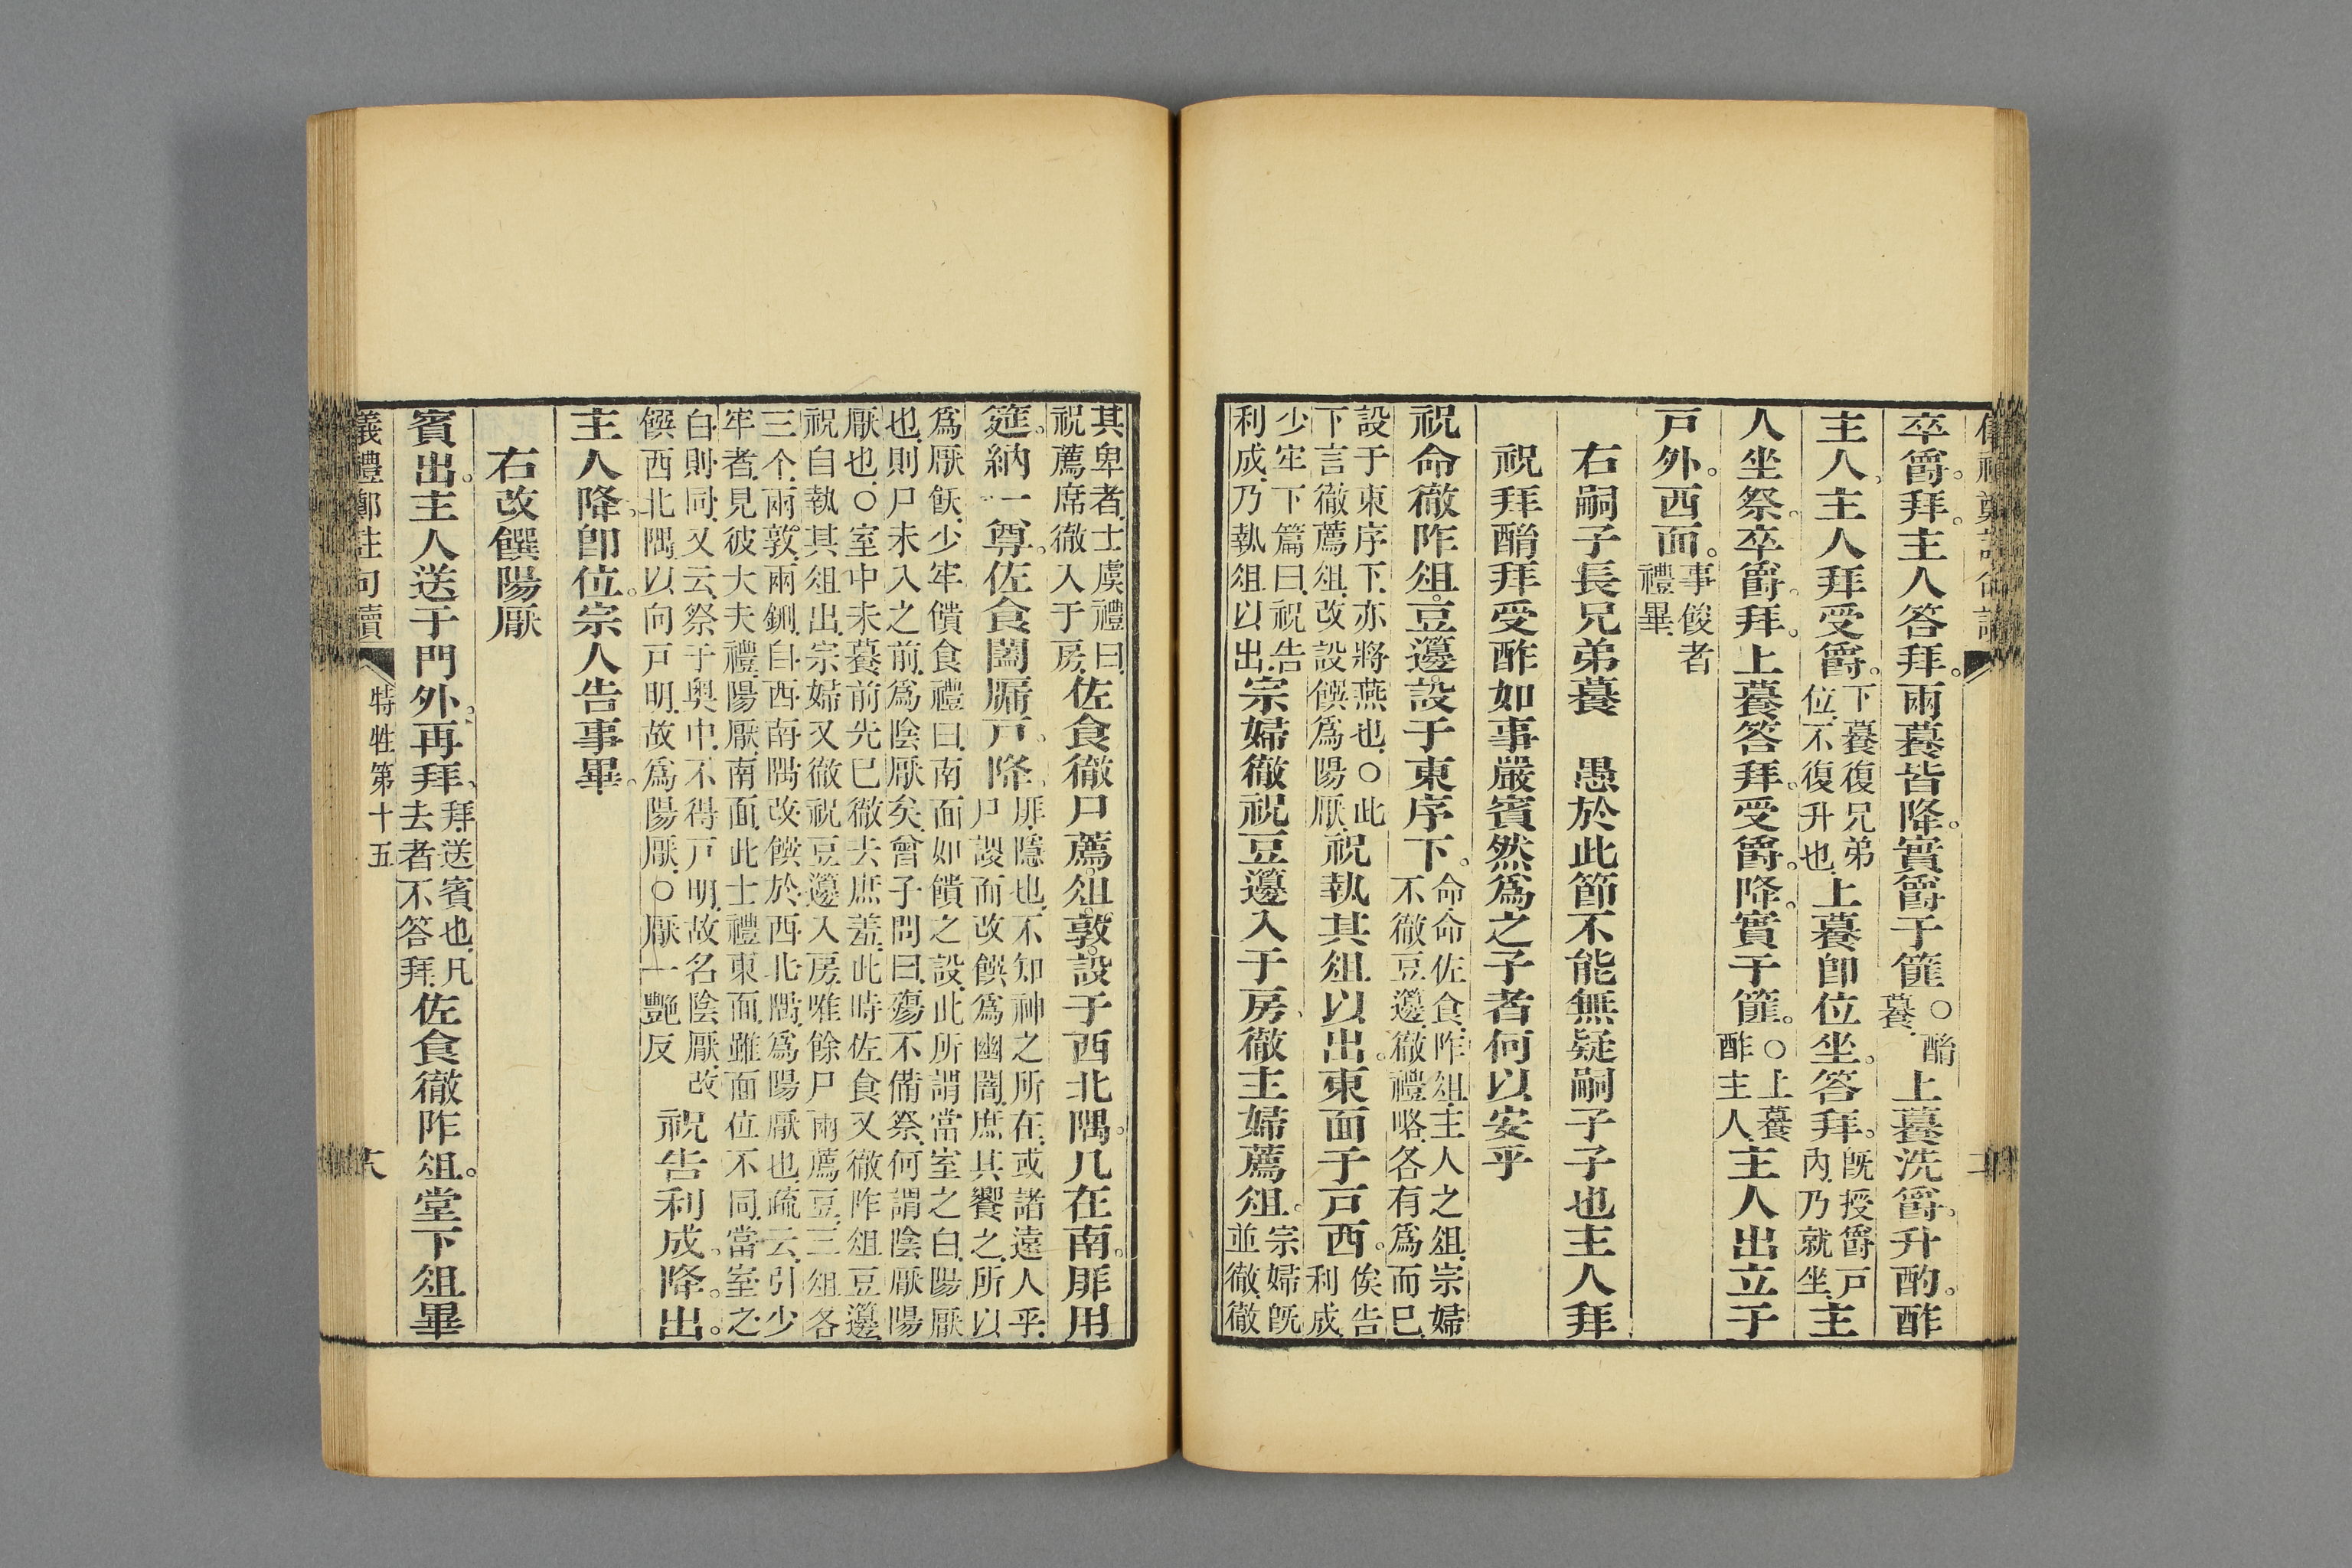 卒爵。拜。主人答拜。兩䉵皆降。實爵于篚○酳䉵上䉵洗爵。升酌。酢
主人。主人拜受爵。下䉵復兄弟位不復升也上䉵卽位坐。答拜。旣授爵戶內乃就坐主
人坐祭。卒爵。拜。上䉵答拜。受爵。降。實于篚。○上䉵酢主人主人出立于
戶外。西面。事餕者禮畢
右嗣子長兄弟䉵　愚於此節不能無疑嗣子子也主人拜
祝拜酳拜受酢如事嚴賓然爲之子者何以安乎
祝命徹阼俎豆籩設于東序下。命命佐食阼俎主人之俎宗婦不徹豆籩徹禮略各有爲而已
設于東序下亦將燕也○此下言徹薦俎改設饌爲陽厭祝執其俎以出。東面于戶西。俟告利成
少牢下篇曰祝告利成乃執俎以出宗婦徹祝豆籩入于房徹主婦薦俎。宗婦旣並徹徹
其卑者士虞禮曰祝薦席徹入于房佐食徹尸薦俎敦設于西北隅。几在南。厞用
筵。納一尊。佐食闔牖戶。降。厞隱也不知神之所在或諸遠人乎尸謖而改饌爲幽闇庶其饗之所以
爲厭飫少牢饋食禮曰南面如饋之設此所謂當室之白陽厭也則尸未入之前爲陰厭矣曾子問曰殤不備祭何謂陰厭陽
厭也○室中未䉵前先已徹去庶羞此時佐食又徹阼俎豆籩祝自執其俎出宗婦又徹祝豆籩入房唯餘尸兩薦豆三俎各
三个兩敦兩鉶自西南隅改饌於西北隅爲陽厭也疏云引少牢者見彼大夫禮陽厭南面此士禮東面雖面位不同當室之
白則同又云祭于奧中不得戶明故名陰厭改饌西北隅以向戶明故爲陽厭○厭一艷反祝告利成。降。出。
主人降。卽位。宗人告事畢。
右改饌陽厭
賓出。主人送于門外。再拜。拜送賓也凡去者不答拜佐食徹阼俎。堂下俎畢
儀禮鄭註句讀　特牲第十五